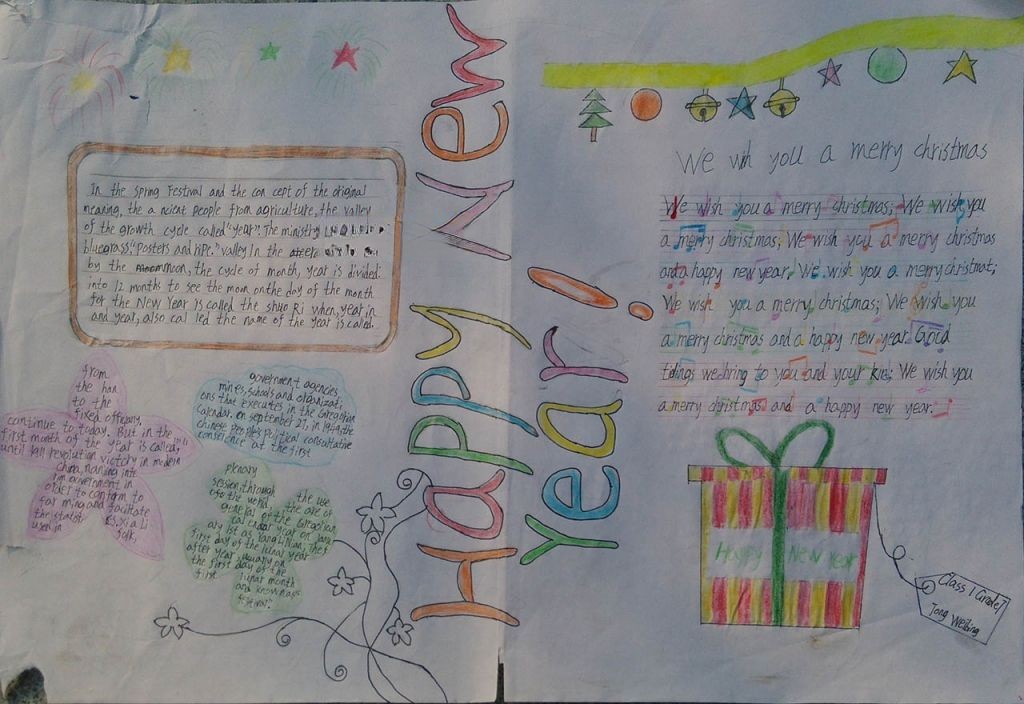 In the Spring Festival and the con cept of the original
meaning, the a ncient people from agriculture, the valley
of the growth cycle called "year". The ministry
bluegrass, "posters and
valley In the
by the moon, the cycle of month, year is divided
into 12 months to see the moon on the day of the month
for the New Year is called the shuo Ri when, year in
and year, also cal led the name of the year is called.
from
the han
to the
fixed offerary,
continue to today. But in the
first month of the year is called,
until fall revolution victory in modern
China, naming into
government in
order to conform to
far ming and facilitate
the statist
used in
folk,
government agencies,
mines, schools and organizati
ons that executes in the Gregorian
Calendar. On september 27, in 1949, the
chinese people's political consultative
conference at the first
plenary
session through the use
of the world the are of
of the Gregorian
cal endar year on Jan
ary as Yang
first day of the lunar year
after year usually on
the first day of the
first lunar month
and known as
Happy New
Year!
We wih you a merry christmas
We wish you a merry christmas; We wish you
a merry christmas; We wish you a merry christmas
and a happy new year. We wish you a merry christmat;
We wish you a merry christmas; We wish you
a merry christmas and a happy new year. Good
tidings we bring to you and your kin; We wish you
a merry christmas and a happy new year.
Happy New Year
Class 1 Grade 7
Tong Weibing